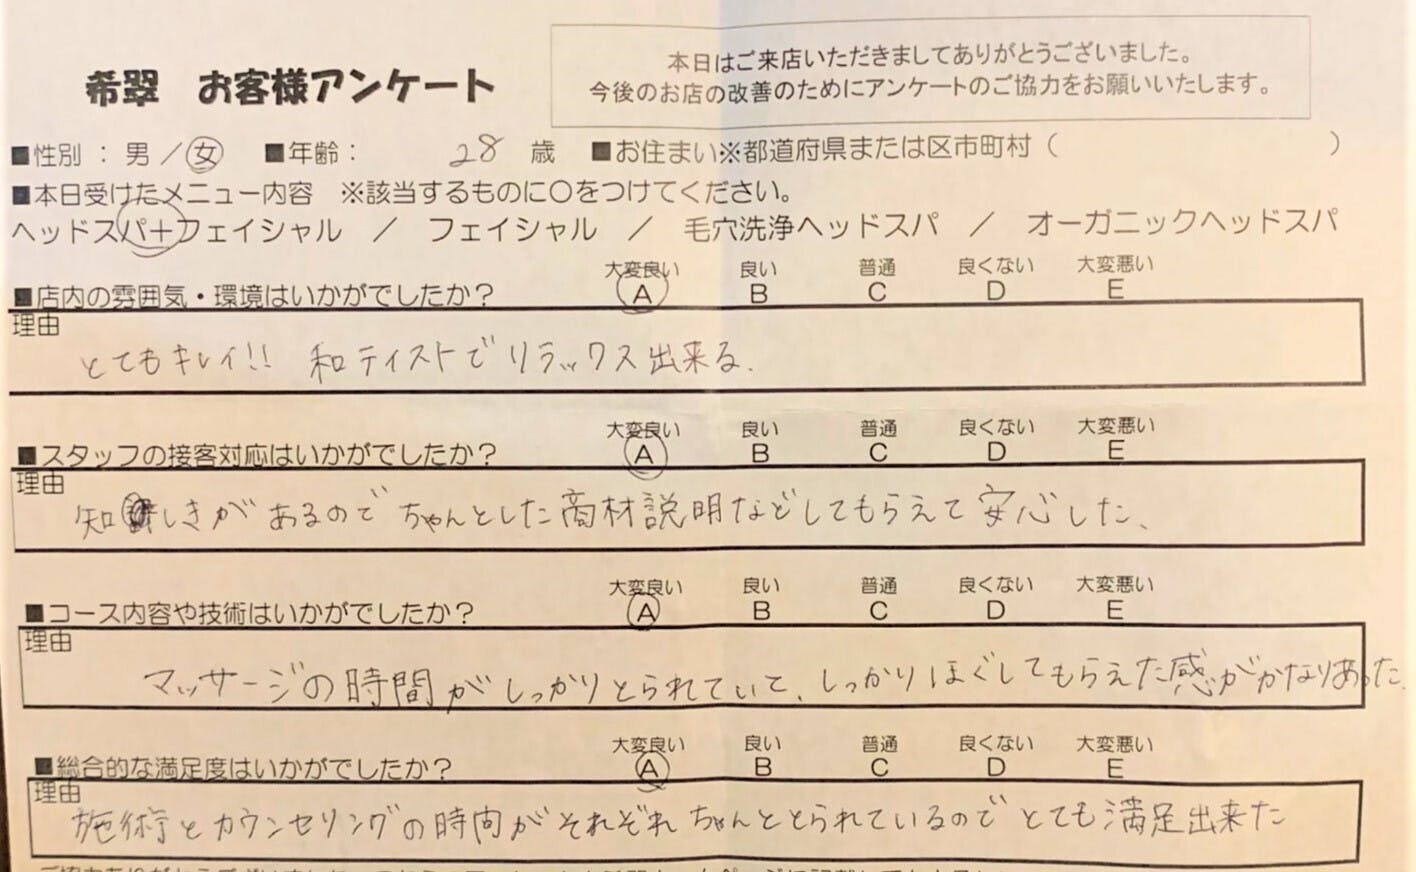 希翠 お客様アンケート
本日はご来店いただきましてありがとうございました。
今後のお店の改善のためにアンケートのご協力をお願いいたします。
■性別：男／女 ■年齢： 28 歳 ■お住まい※都道府県または区市町村（ ）
■本日受けたメニュー内容 ※該当するものに○をつけてください。
ヘッドスパ＋フェイシャル ／ フェイシャル ／ 毛穴洗浄ヘッドスパ ／ オーガニックヘッドスパ
大変良い 良い 普通 良くない 大変悪い
■店内の雰囲気・環境はいかがでしたか？ A B C D E
理由
とてもキレイ!! 和テイストでリラックス出来る.
大変良い 良い 普通 良くない 大変悪い
■スタッフの接客対応はいかがでしたか？ A B C D E
理由
知しきがあるのでちゃんとした商材説明などしてもらえて安心した、
大変良い 良い 普通 良くない 大変悪い
■コース内容や技術はいかがでしたか？ A B C D E
理由
マッサージの時間がしっかりとられていて、しっかりほぐしてもらえた感がかなりあった.
大変良い 良い 普通 良くない 大変悪い
■総合的な満足度はいかがでしたか？ A B C D E
理由
施術とカウンセリングの時間がそれぞれちゃんととられているのでとても満足出来た